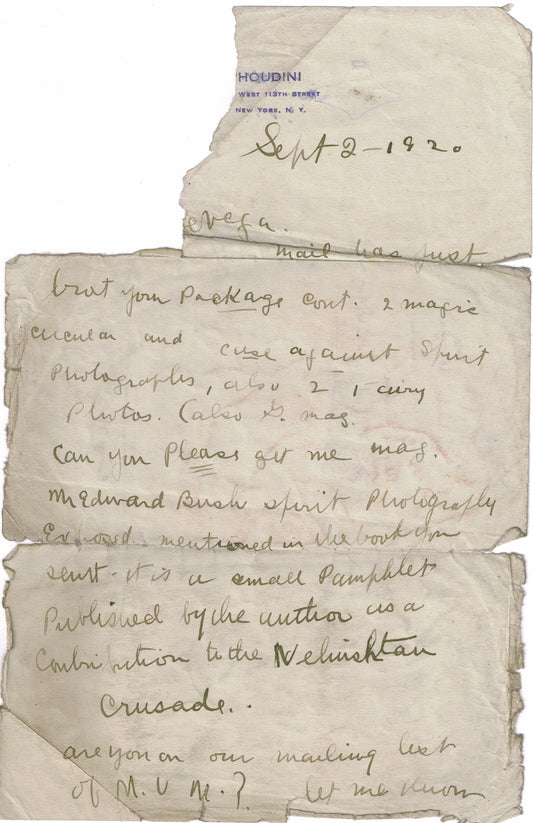 HOUDINI
WEST 113TH STREET
NEW YORK, N. Y.
Sept 2 - 1920
Vega.
mail has just
brot your Package cont. 2 magic
circular and case against Spirit
Photographs, also 2 Fairy
Photos. (also G. mag.
Can you Please get me mag.
Mr Edward Bush spirit Photography
Exposed. mentioned in the book you
sent - it is a small Pamphlet
Published by the author as a
Contribution to the Nehushtan
Crusade..
are you on our mailing list
of M. U M.? let me know